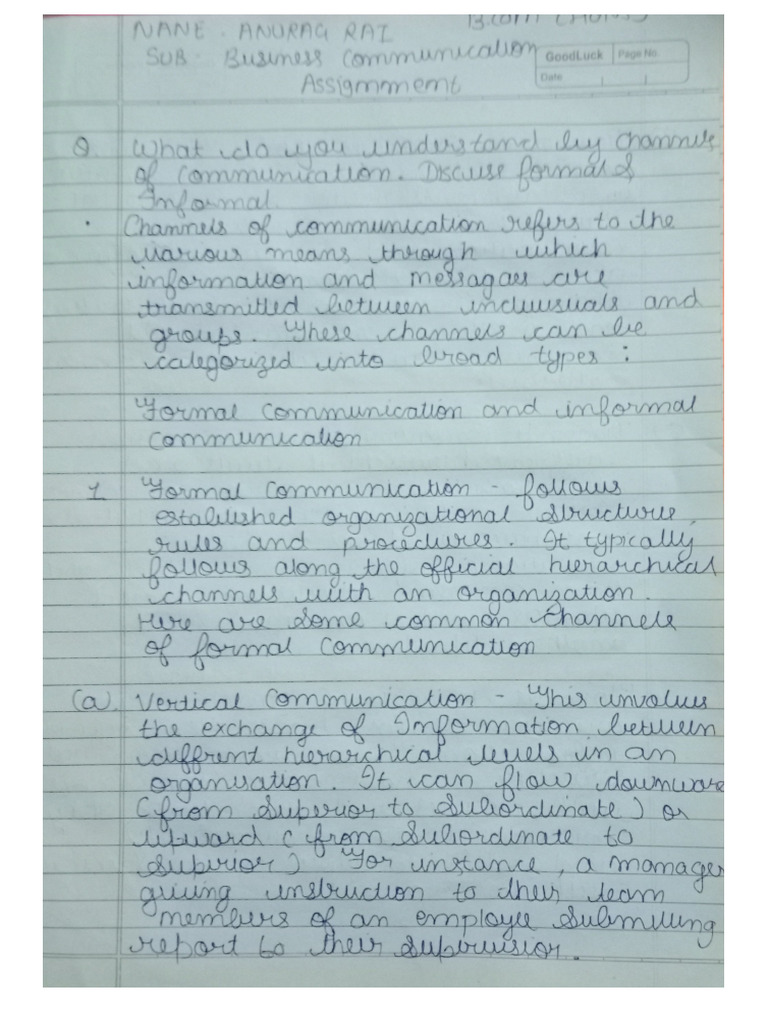 NANE - ANURAG RAI B.COM (HONS)
SUB - Business Communication
Assignmment
GoodLuck Page No.
Date
Q What do you understand by Channels
of Communication. Discuse formal &
Informal
. Channels of communication refers to the
various means through which
information and messagaes are
transmitted between induvisuals and
groups. These channels can be
categorized into broad types :
Formal Communication and informal
Communication
1 Formal Communication - follows
established organizational structure,
rules and procedures. It typically
follows along the official hierarchical
channels with an organization.
Here are some common channels
of formal Communication
(a) Vertical Communication - This involves
the exchange of Information between
diffrent hierarchical levels in an
organisation. It can flow downward
(from Superior to Subordinate) or
upward (from Subordinate to
Superior) For instance, a manager
giving instruction to their team
members of an employee Submitting
report to their Supervisior.